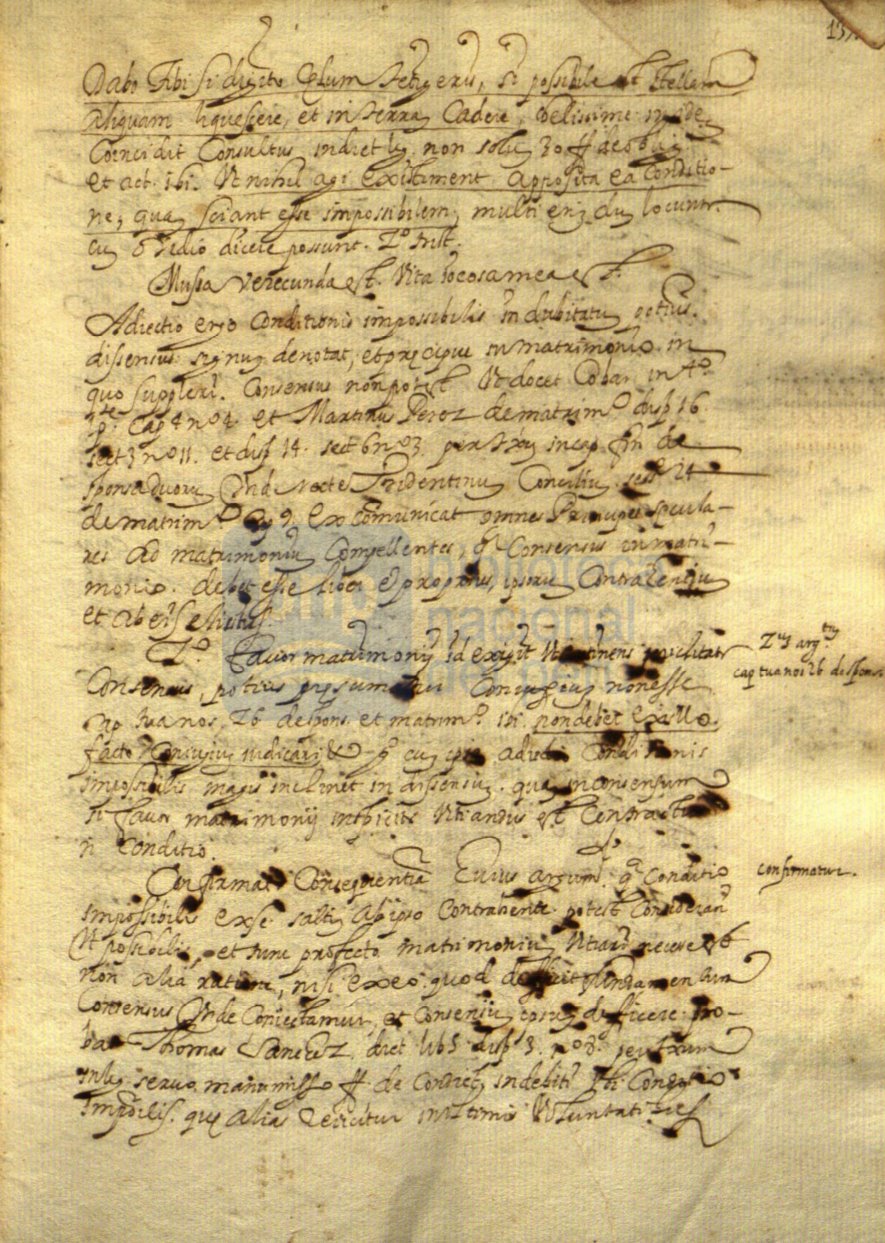 13
Dabo tibi si digito cælum tetigeris, si possibile est stellam
aliquam liquescere, et in terrã cadere, bellissime in idẽ
Coincidit Consultus in dict. leg. non solũ 30 ff de oblig.
et act. ibi. Ut nihil agi existiment apposita ea Conditio-
ne, quaȝ sciant esse impossibilem, multi enĩ dũ locuntr.
cũ Ovidio dicere possunt. 2º trist.
Mussa verecunda est. Vita iocosa mea est.
Adiectio ergo Conditionis impossibilis indubitatũ potius.
dissensus signuȝ denotat, et prçcipue in matrimonio. in
quo suppleri. Consensus non potest. Ut docet Cobar. in 4º
pte. Cap 4 nº 4. et Martinus Perez de matrimº. disp 16.
sect 3 nº 11. et disp 14. sect 6 nº 3. per txũ in cap. fin de
sponsa duorũ Unde recte Tridentinũ Conciliũ. sess. 24
de matrimº. cap 9. excomunicat omnes Principes specula-
res ad matrimoniũ Compellentes, qª Consensus in matri-
monio. debet esse liber et proprius, ipsorũ Contrahentiũ
et ab eis elicitus.
2º. favor matrimonij id exigit Ut
Consensus, potius presumatur Coniugiuȝ non esse
cap tua nos. 26 de spons. et matrimº. ibi. non debet ex illo.
facto Coniugiũ iudicari &. qª cũ adiectio Conditionis
impossibilis magis inclinet in dissensũ. quaȝ in consensum
si favor matrimonij inspicitr Utiandus est Contractus
ñ Conditio.
Confirmatr Consequentia Cuius argumti. qª Conditio
impossibilis ex se saltẽ ab ipso Contrahente potest Considerari
Ut possibilis, et tunc profecto matrimoniũ Utiari necesse est
non alia ratione, nisi ex eo. quod deficit fundamentum
Consensus Unde Coniectamur, et Consensũ ipsuȝ deficere pro-
bat Thomas Sanchez. dict lib 5 disp 3. nº 8º. per txum
in leg servo manumisso ff de Condict. indebiti ibi Conditio
impoßilis. quç alia reiicitur in ultimis Voluntatibus
2ũ argtũ
cap tua nos 26 de sponsa.
confirmatur.